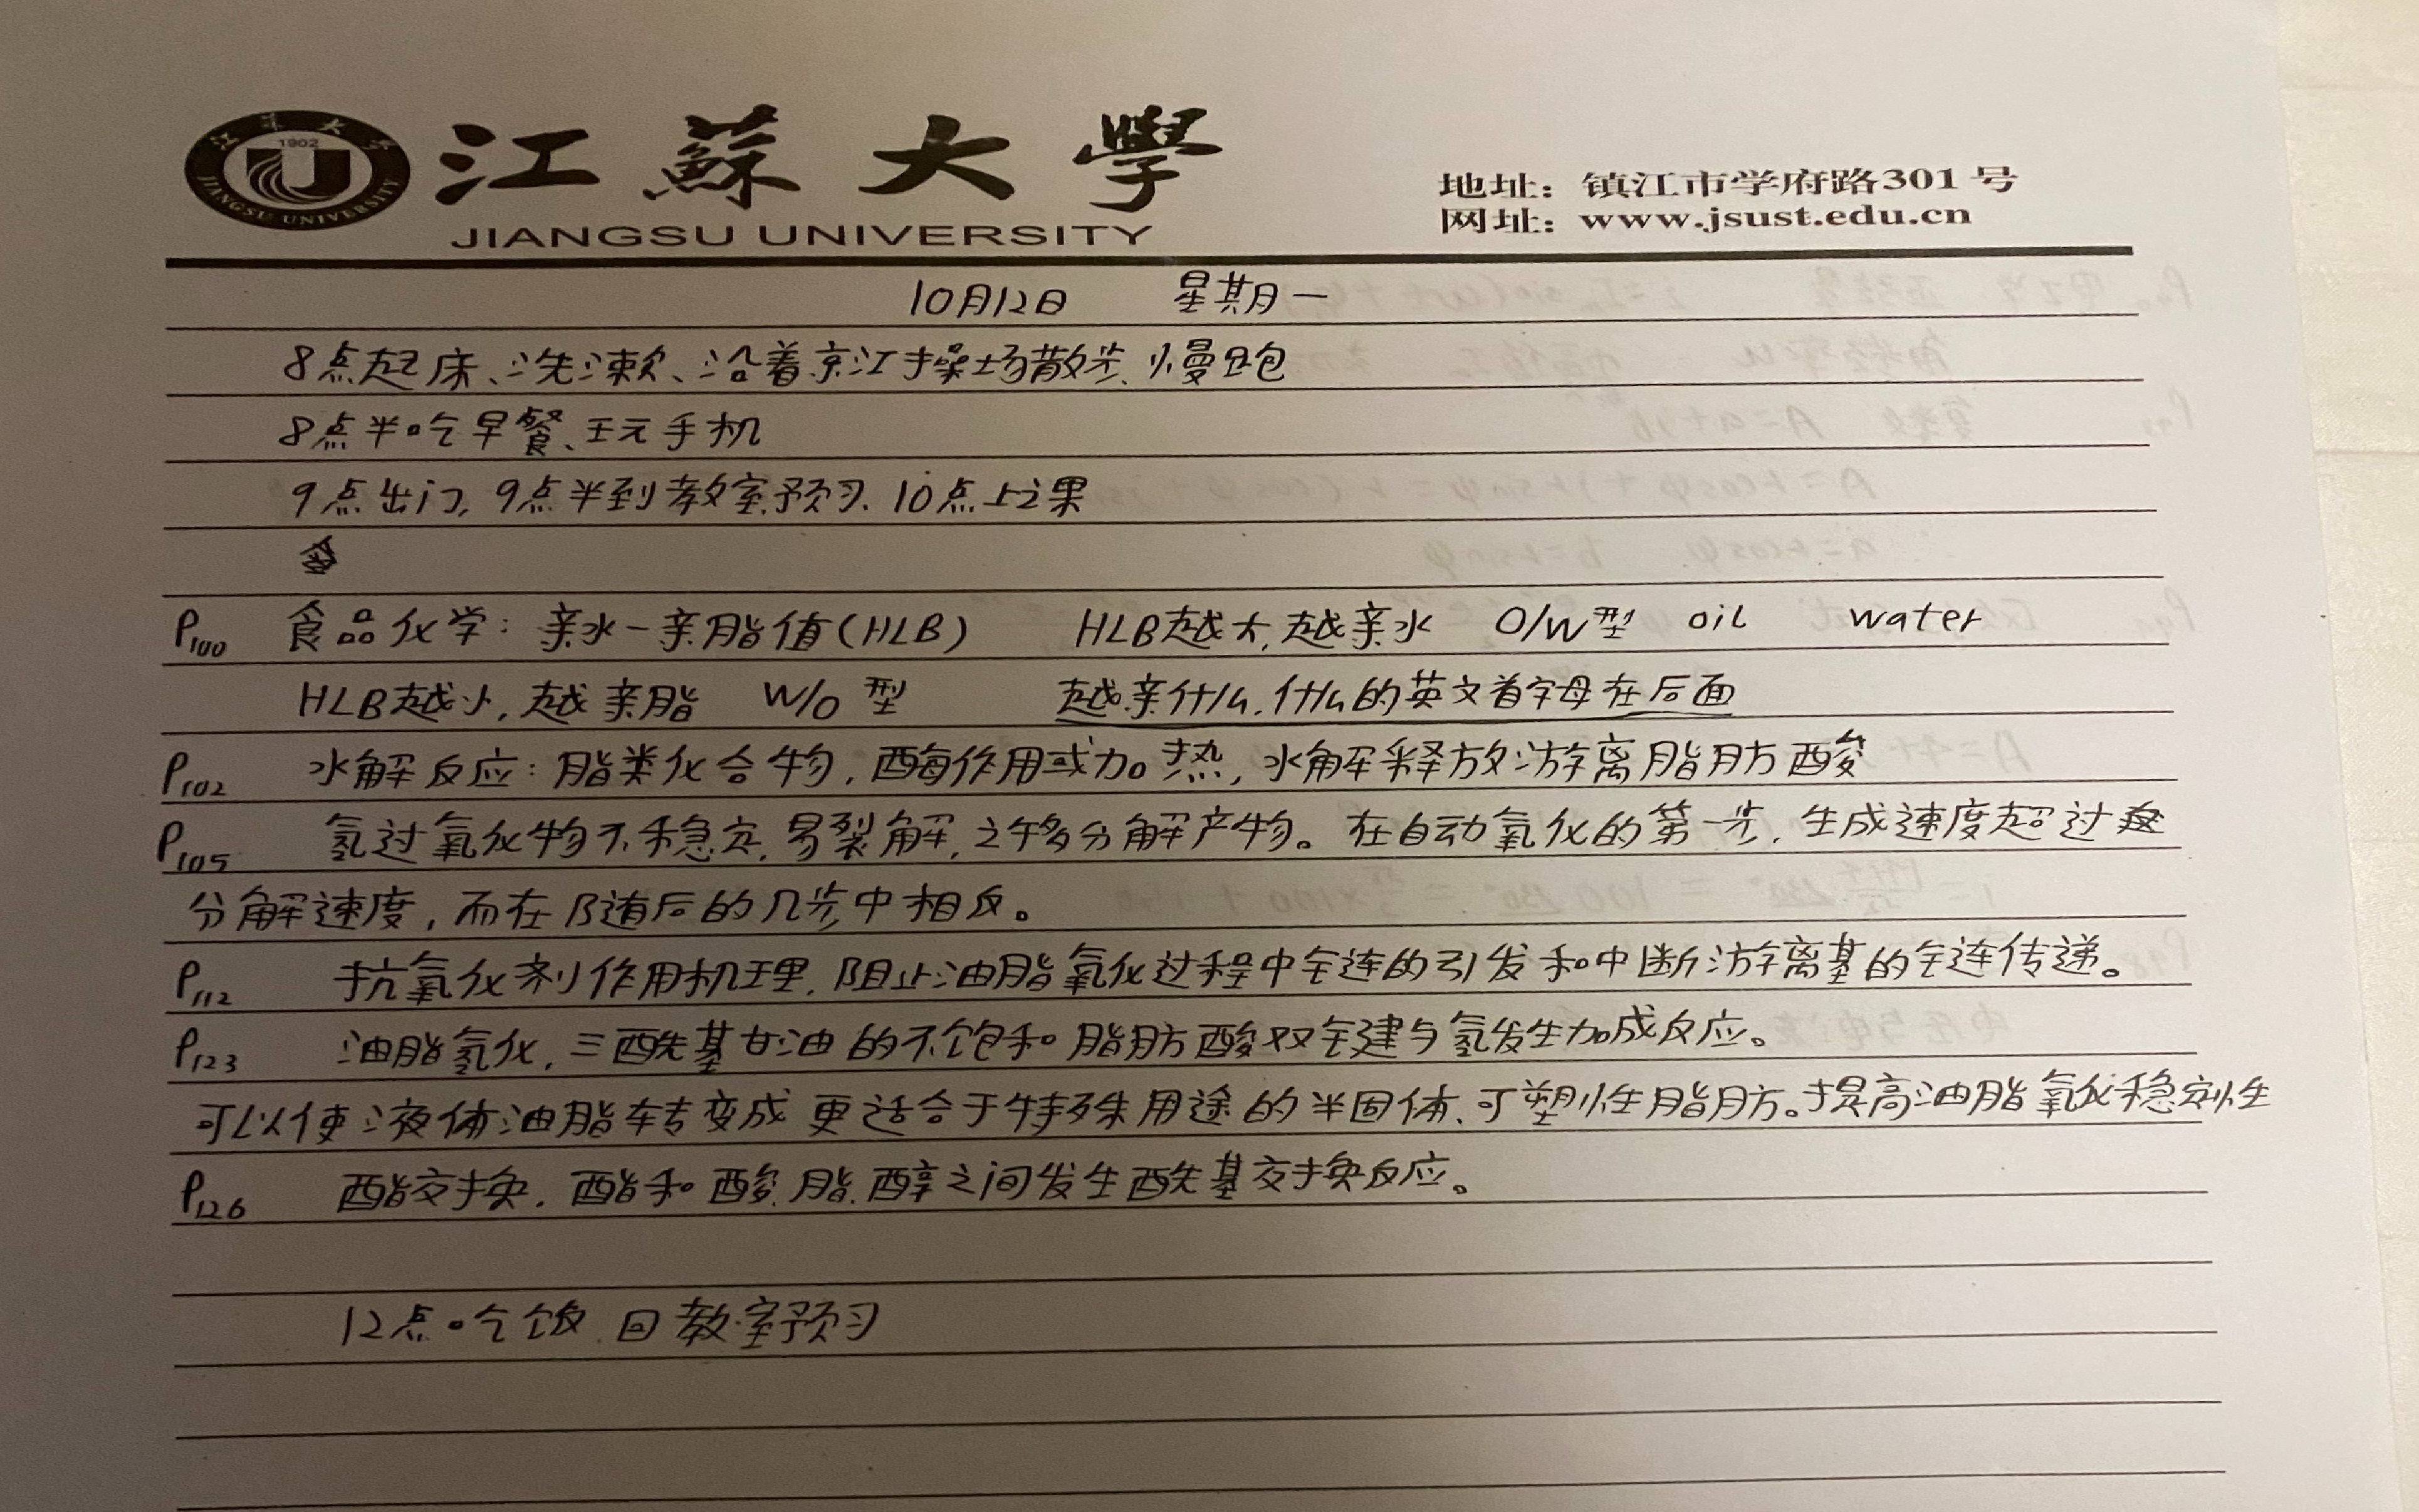 江蘇大學
JIANGSU UNIVERSITY
江苏大学
1902
JIANGSU UNIVERSITY
地址：镇江市学府路301号
网址：www.jsust.edu.cn
10月12日 星期一
8点起床、洗漱、沿着京江操场散步、慢跑
8点半吃早餐、玩手机
9点出门，9点半到教室预习、10点上课
P100 食品化学：亲水-亲脂值(HLB) HLB越大，越亲水 O/W型 oil water
HLB越小，越亲脂 W/O型 越亲什么，什么的英文首字母在后面
P102 水解反应：脂类化合物，酶作用或加热，水解释放游离脂肪酸
P105 氢过氧化物不稳定，易裂解，许多分解产物。在自动氧化的第一步，生成速度超过
分解速度，而在随后的几步中相反。
P112 抗氧化剂作用机理，阻止油脂氧化过程中链的引发和中断游离基的链传递。
P123 油脂氢化，三酰基甘油的不饱和脂肪酸双键与氢发生加成反应。
可以使液体油脂转变成更适合于特殊用途的半固体、可塑性脂肪。提高油脂氧化稳定性
P126 酯交换，酯和酸、脂、醇之间发生酰基交换反应。
12点吃饭、回教室预习